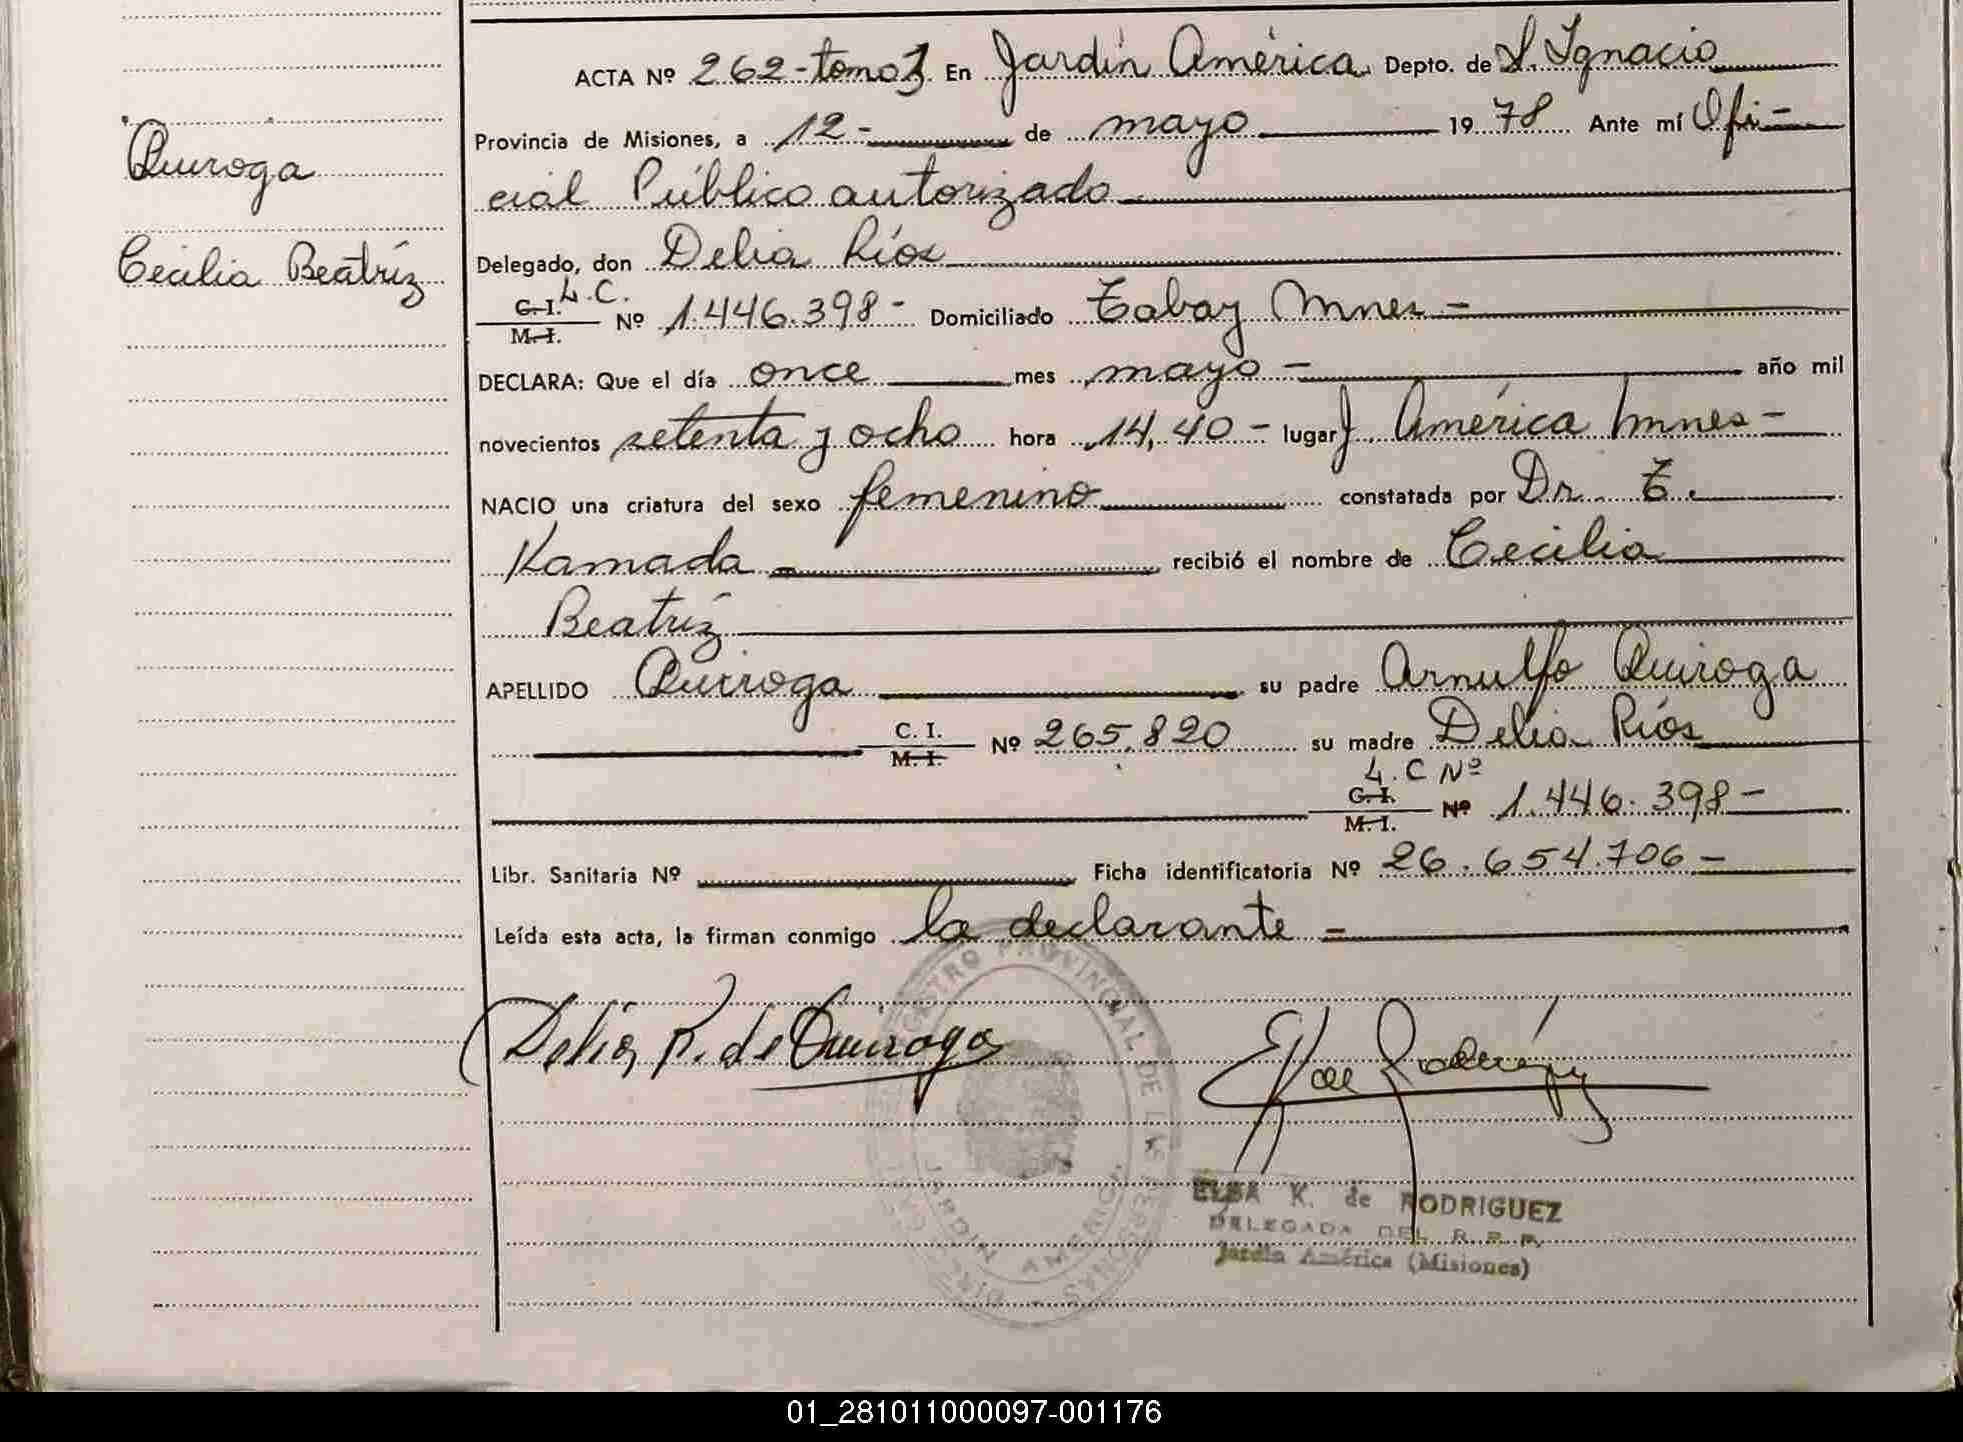 Quiroga
Cecilia Beatríz
ACTA Nº 262-tomo 3 En Jardín América Depto. de S. Ignacio
Provincia de Misiones, a 12- de mayo 1978 Ante mí Ofi-
cial Público autorizado
Delegado, don Delia Ríos
L.C.
C.I. / M.I. Nº 1.446.398- Domiciliado Tabay Mnes-
DECLARA: Que el día once mes mayo- año mil
novecientos setenta y ocho hora 14,40- lugar J. América Mnes-
NACIO una criatura del sexo femenino constatada por Dr. T.
Kamada- recibió el nombre de Cecilia
Beatríz
APELLIDO Quiroga su padre Arnulfo Quiroga
C. I. / M. I. Nº 265.820 su madre Delia Ríos
L. C Nº
C.I. / M.I. Nº 1.446.398-
Libr. Sanitaria Nº Ficha identificatoria Nº 26.654.706-
Leída esta acta, la firman conmigo la declarante-
Delia R. de Quiroga
REGISTRO PROVINCIAL DE LAS PERSONAS
JARDIN AMERICA
ELSA K. de RODRIGUEZ
DELEGADA DEL R. P. P.
Jardín América (Misiones)
01_281011000097-001176